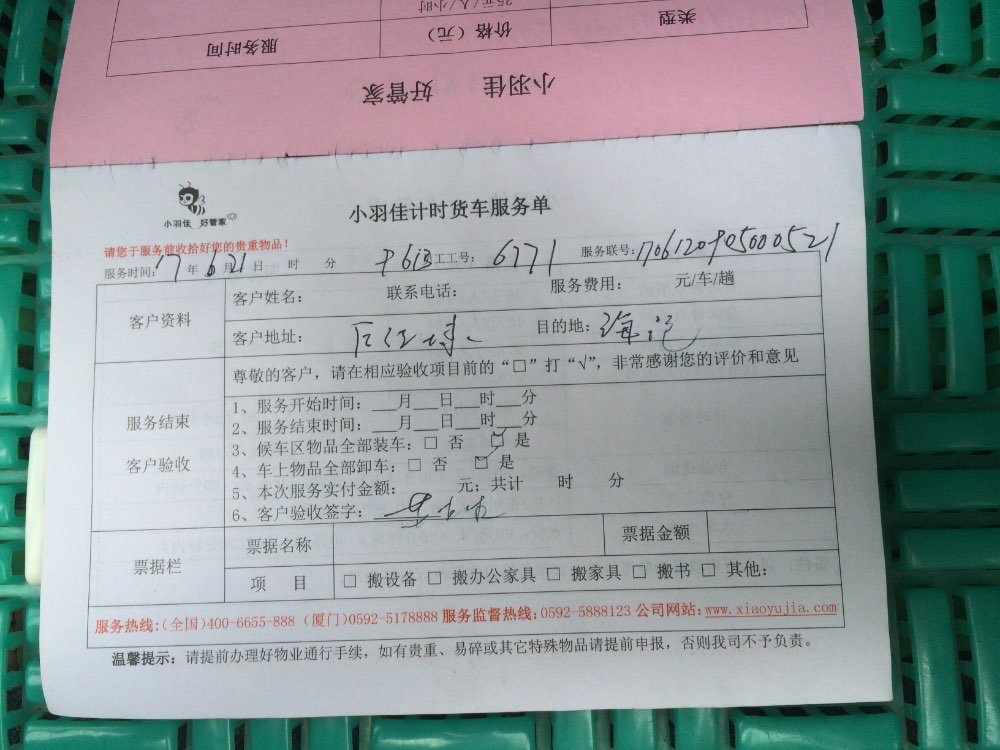 25元/人/小时
类型 价格（元） 服务时间
小羽佳 好管家
小羽佳 好管家
小羽佳计时货车服务单
请您于服务前收拾好您的贵重物品！
服务时间：17年6月21日 时 分 工工号：6771 服务联号：
客户资料
客户姓名： 联系电话： 服务费用： 元/车/趟
客户地址： 目的地：
服务结束
客户验收
尊敬的客户，请在相应验收项目前的“□”打“√”，非常感谢您的评价和意见
1、服务开始时间：___月___日___时___分
2、服务结束时间：___月___日___时___分
3、候车区物品全部装车：□ 否 ☑ 是
4、车上物品全部卸车：□ 否 ☑ 是
5、本次服务实付金额： 元；共计 时 分
6、客户验收签字：
票据栏
票据名称 票据金额
项 目 □ 搬设备 □ 搬办公家具 □ 搬家具 □ 搬书 □ 其他：
服务热线：(全国)400-6655-888 (厦门)0592-5178888 服务监督热线：0592-5888123 公司网站：www.xiaoyujia.com
温馨提示：请提前办理好物业通行手续，如有贵重、易碎或其它特殊物品请提前申报，否则我司不予负责。